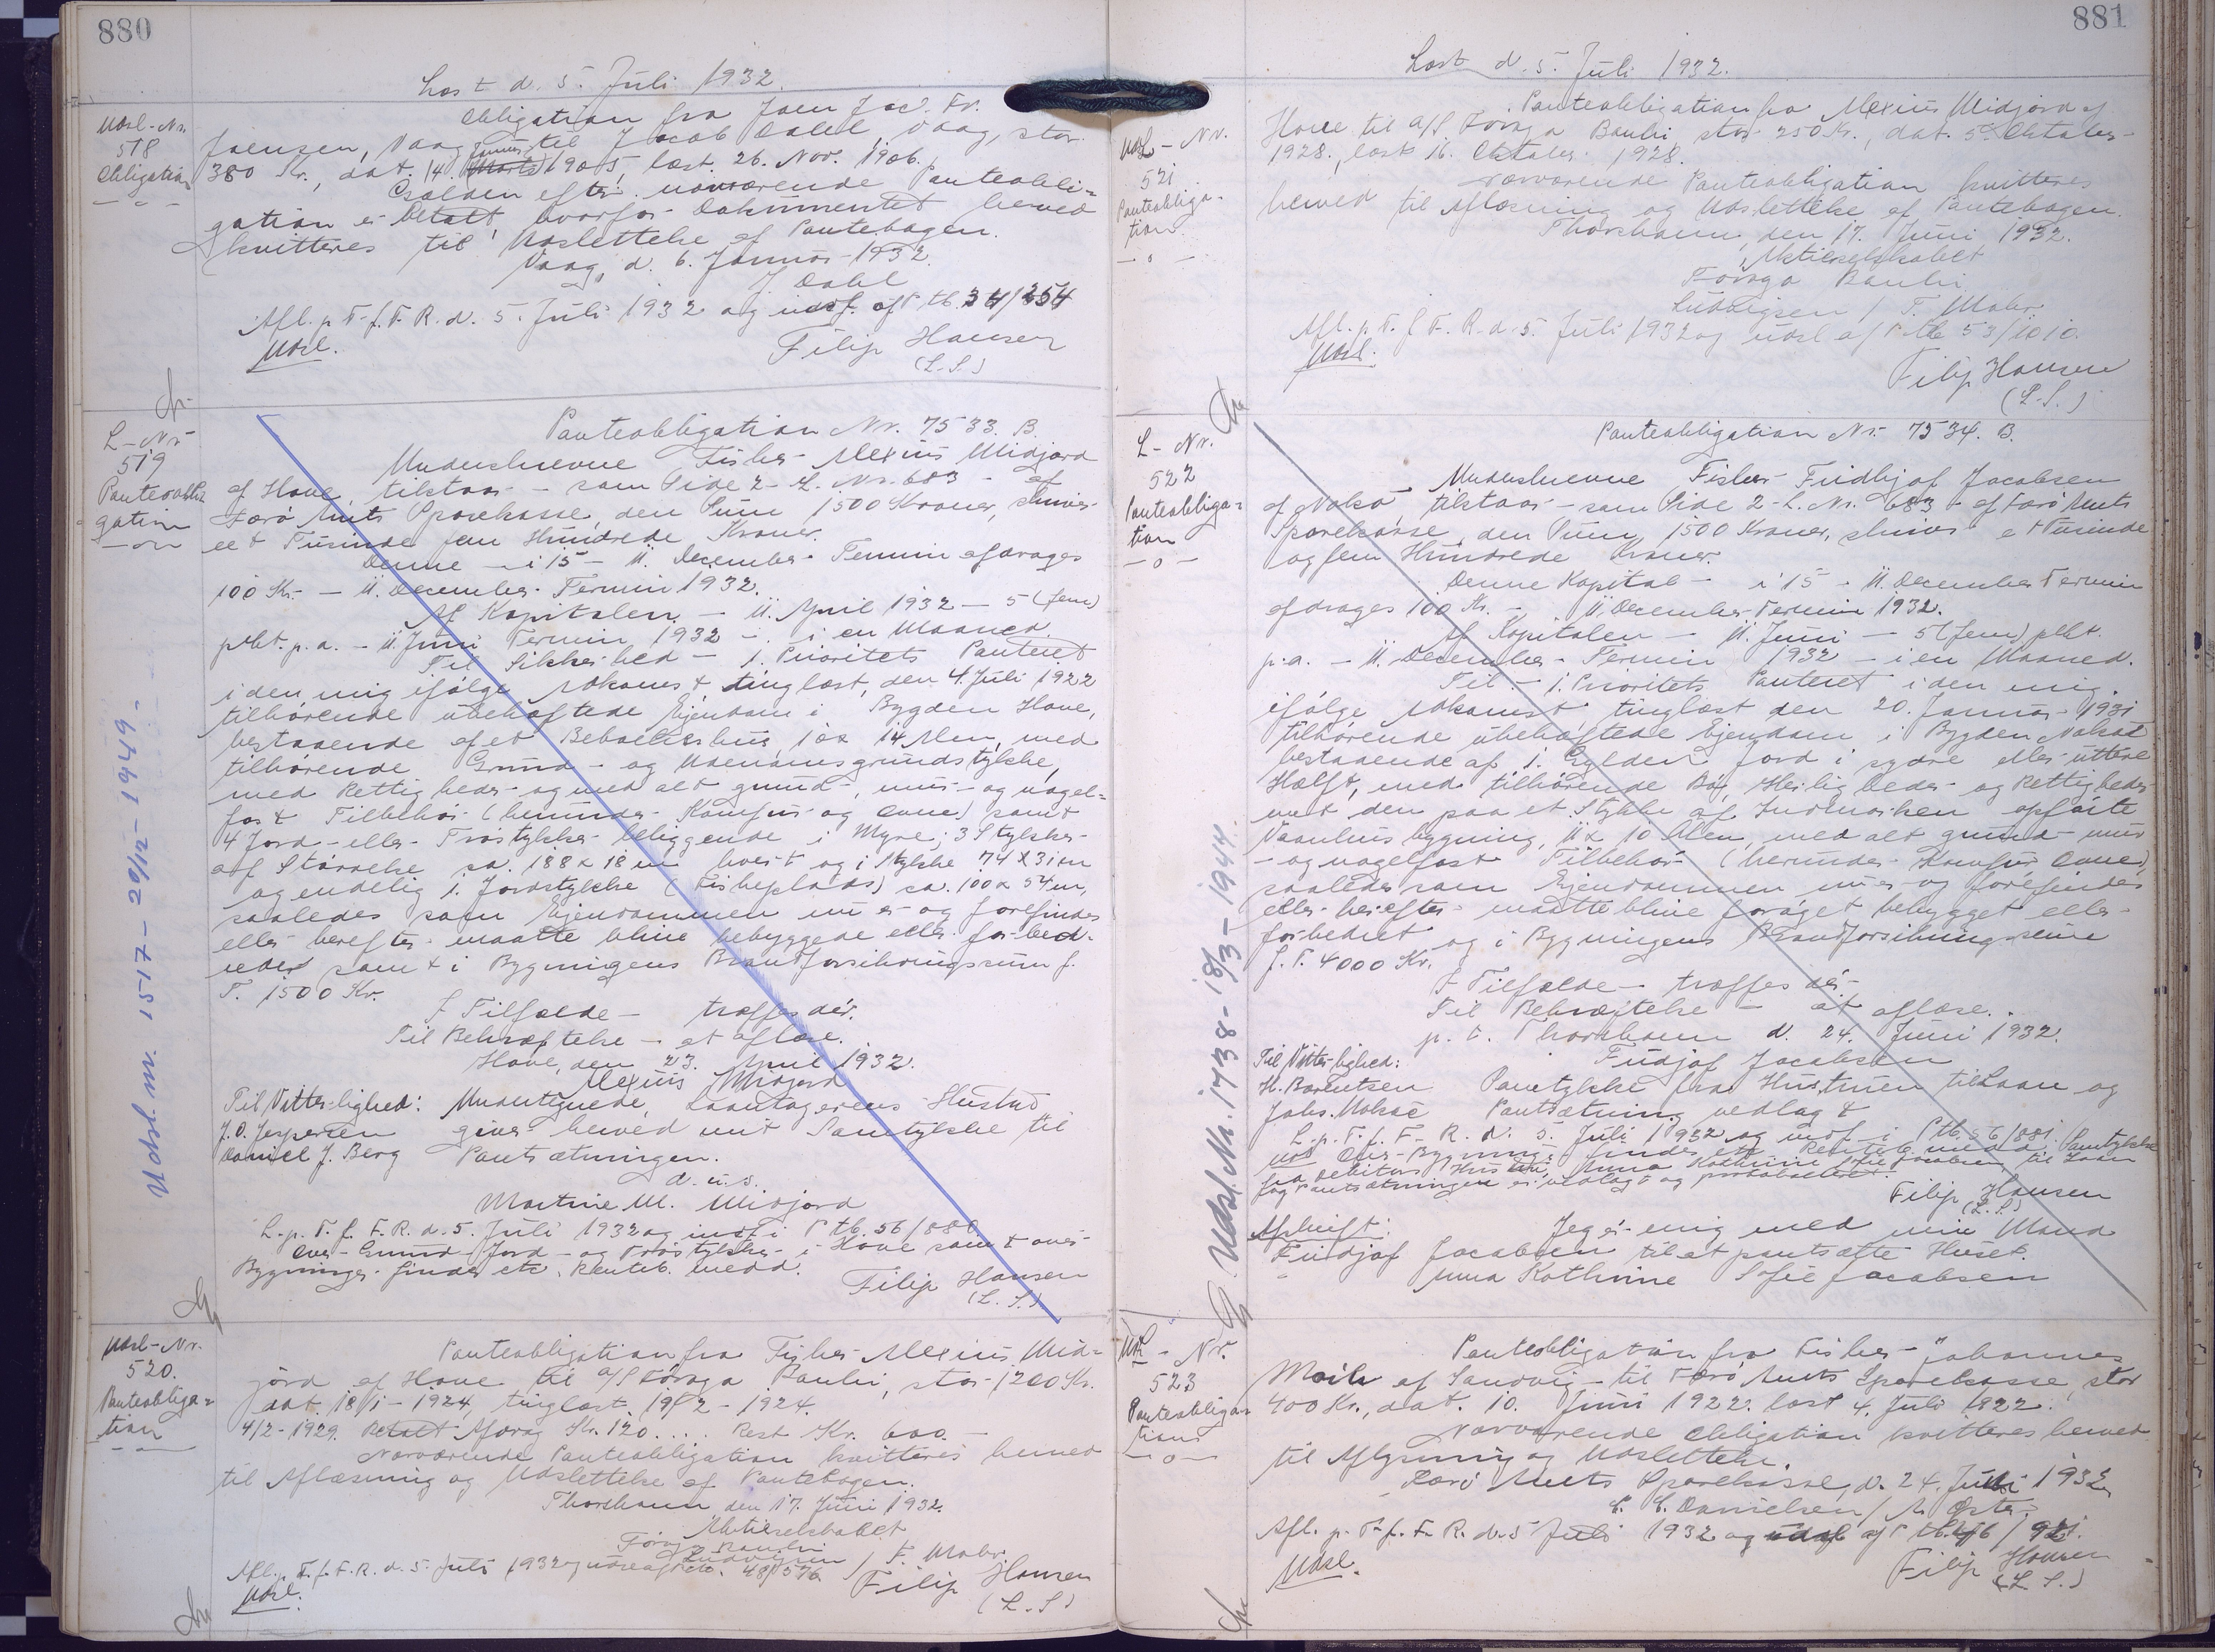 880
Læst d. 5. Juli 1932.
Udsl-Nr.
518
Obligation
Obligation fra Joen Jac. Fr.
Joensen, Vaag til Jacob Dahl, Vaag, stor
380 Kr., dat. 14. Januar 1905, læst 26. Nov. 1906.
Gælden efter nærværende Panteobli=
gation er betalt, hvorfor Dokumentet herved
kvitteres til Udslettelse af Pantebogen.
Vaag, d. 6. Januar 1932.
J. Dahl
Afl. p. T. f. F. R. d. 5. Juli 1932 og udsl. af P tb. 34/254
Udsl.
Filip Hansen
(L.S.)
L-Nr
519
Panteobli
gation
Panteobligation Nr. 7533. B.
Underskrevne Fisker Alexius Midjord
af Hove, tilstaar - som Side 2 - L. Nr. 683 - af
Færø Amts Sparekasse, den Sum 1500 Kroner, skriver
eet Tusinde fem Hundrede Kroner.
Denne - i 15 - 11. December Termin afdrages
100 Kr. - 11. December Termin 1932.
Af Kapitalen - 11. April 1932 - 5 (fem)
pCt. p.a. - 11. Juni Termin 1932 - i en Maaned.
Til Sikkerhed - 1. Prioritets Panteret
i den mig ifølge Adkomst, tinglæst, den 4. Juli 1922
tilhørende ubehæftede Ejendom i Bygden Hove,
bestaaende af et Beboelseshus, 10 x 14 Alen, med
tilhørende Grund- og Udenomsgrundstykke,
med Rettigheder og med alt grund-, mur- og nagel=
fast Tilbehør (herunder Komfur og Ovne) samt
4 Jord- eller Trøstykker beliggende i Myre; 3 Stykker
af Størrelse ca. 188 x 18 m hvert og i Stykke 74 x 31 m
og endelig 1. Jordstykke (Fiskeplads) ca. 100 x 54 m,
saaledes som Ejendommen nu er og forefindes
eller herefter maatte blive bebyggede eller forbed-
redes samt i Bygningens Brandforsikringssum f.
T. 1500 Kr.
I Tilfælde - træffes dér.
Til Bekræftelse - at aflæse.
Hove, den 23. April 1932.
Alexius Midjord
Til Vitterlighed:
J.O. Jespersen
Daniel J. Berg
Undertegnede, Laantagerens Hustru
giver herved mit Samtykke til
Pantsætningen.
d. u. s.
Martine M. Midjord
L. p. T. f. F. R. d. 5. Juli 1932 og indf. i P tb. 56/880.
Over Grund Jord- og Trøstykker i Hove samt over
Bygninger findes etc. Renteb. medd.
Filip Hansen
(L.S.)
Udsl. nr. 1517 - 20/12 - 1949 -
Udsl-Nr.
520.
Panteobliga=
tion
Panteobligation fra Fisker Alexius Mid=
jord af Hove til A/S Føroya Banki, stor 1200 Kr.
dat. 18/1 - 1924, tinglæst 19/2 - 1924.
4/2 - 1929. Betalt Afdrag Kr. 120.... Rest Kr. 600.-
Nærværende Panteobligation kvitteres herved
til Aflæsning og Udslettelse af Pantebogen.
Thorshavn den 17. Juni 1932.
Aktieselskabet
Føroya Banki
Ludvigsen / T. Mohr
Afl. p. T. f. F. R. d. 5. Juli 1932 og udsl. af P tb. 48/576.
Udsl.
Filip Hansen
(L.S)
881
Læst d. 5. Juli 1932.
Udsl - Nr.
521
Panteobliga-
tion
Panteobligation fra Alexius Midjord af
Hove til A/S Føroya Banki, stor 250 Kr., dat. 5. Oktober
1928, læst 16. Oktober 1928.
Nærværende Panteobligation kvitteres
herved til Aflæsning og Udslettelse af Pantebogen.
Thorshavn, den 17. Juni 1932.
Aktieselskabet
Føroya Banki
Ludvigsen / T. Mohr
Afl. p. T. f. F. R. d. 5. Juli 1932 og udsl af P tb 53/1010.
Udsl.
Filip Hansen
(L.S.)
L - Nr.
522
Panteobliga=
tion
Panteobligation Nr. 7534. B.
Underskrevne Fisker Fridhjof Jacobsen
af Nolsø, tilstaar - som Side 2 - L. Nr. 683 - af Færø Amts
Sparekasse, den Sum 1500 Kroner, skriver et Tusinde
og fem Hundrede Kroner.
Denne Kapital - i 15 - 11. December Termin
afdrages 100 Kr. - 11. December Termin 1932.
Af Kapitalen - 11. Juni - 5 (fem) pCt.
p.a. - 11. December Termin 1932 - i en Maaned.
Til - 1. Prioritets Panteret i den mig
ifølge Adkomst, tinglæst den 20. Januar 1931
tilhørende ubehæftede Ejendom i Bygden Nolsø
bestaaende af 1. Gylden Jord i søndre eller uttere
Hælft, med tilhørende Bø, Herligheder og Rettigheder
samt den paa et Stykke af Indmarken opførte
Vaanhusbygning, 11 x 10 Alen, med alt grund- mur
- og nagelfast Tilbehør (herunder Komfur, Ovne)
saaledes som Ejendommen nu er og forefindes
eller herefter maatte blive forøget bebygget eller
forbedret og i Bygningens Brandforsikringssum
f. T. 4000 Kr.
I Tilfælde - træffes dér
Til Bekræftelse - at aflæse.
p. t. Thorshavn d. 24. Juni 1932.
Fridjof Jacobsen
Til Vitterlighed:
H. Barentsen
Johs. Nolsøe
Samtykke fra Hustruen til Laan og
Pantsætning vedlagt
L. p. T. f. F. R. d. 5. Juli 1932 og indf i P tb. 56/881. Samtykke
fra Debitors Hustru, Anna Kathrine Sofie Jacobsen til Laan
og Pantsætningen er vedlagt og protokolleret.
Filip Hansen
(L.S.)
Afskrift: Jeg er enig med min Mand
Fridjof Jacobsen til at pantsætte Huset.
Anna Kathrine Sofie Jacobsen
Udsl. Nr. 1738 - 18/3 - 1944.
Udsl - Nr.
523
Panteobliga=
tion
Panteobligation fra Fisker Johannes
af Sandvig til Færø Amts Sparekasse, stor
400 Kr., dat. 10. Juni 1922. læst 4. Juli 1922.
Nærværende Obligation kvitteres herved
til Aflysning og Udslettelse.
Færø Amts Sparekasse, d. 24. Juni 1932
C. C. Danielsen /
Afl. p. T. f. F. R. d. 5 Juli 1932 og udsl af P tb. 46/921.
Udsl.
Filip Hansen
(L.S.)